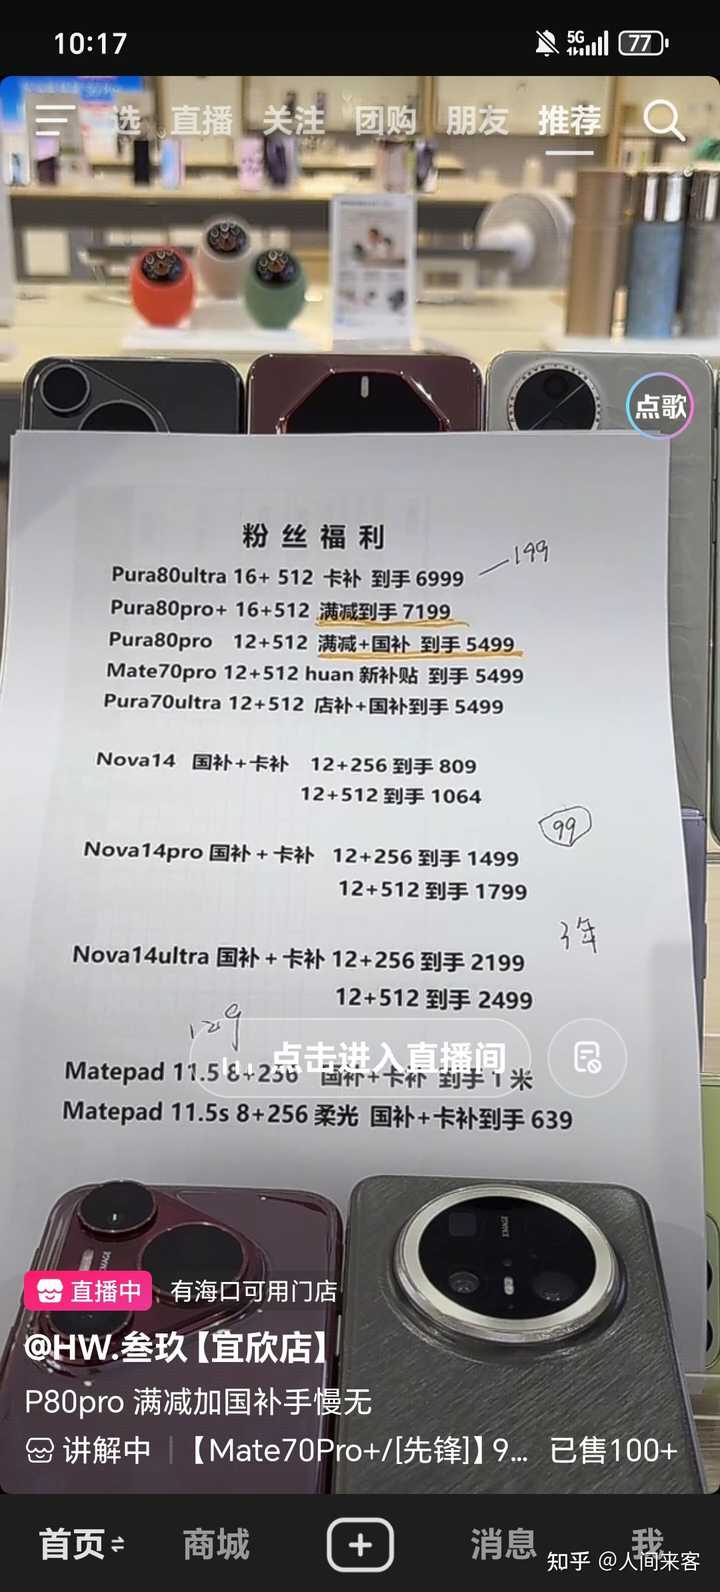 10:17
5G
77
选 直播 关注 团购 朋友 推荐
点歌
粉丝福利
199
Pura80ultra 16+ 512 卡补 到手 6999
Pura80pro+ 16+512 满减到手 7199
Pura80pro 12+512 满减+国补 到手 5499
Mate70pro 12+512 huan 新补贴 到手 5499
Pura70ultra 12+512 店补+国补到手 5499
Nova14 国补+卡补 12+256 到手 809
12+512 到手 1064
99
Nova14pro 国补+卡补 12+256 到手 1499
12+512 到手 1799
3年
Nova14ultra 国补+卡补 12+256 到手 2199
12+512 到手 2499
129
点击进入直播间
Matepad 11.5 8+256 国补+卡补 到手 1 米
Matepad 11.5s 8+256 柔光 国补+卡补到手 639
XMAGE
XMAGE
直播中 有海口可用门店
@HW.叁玖【宜欣店】
P80pro 满减加国补手慢无
讲解中 | 【Mate70Pro+/[先锋]】9... 已售100+
首页 商城 消息 我
知乎 @人间来客